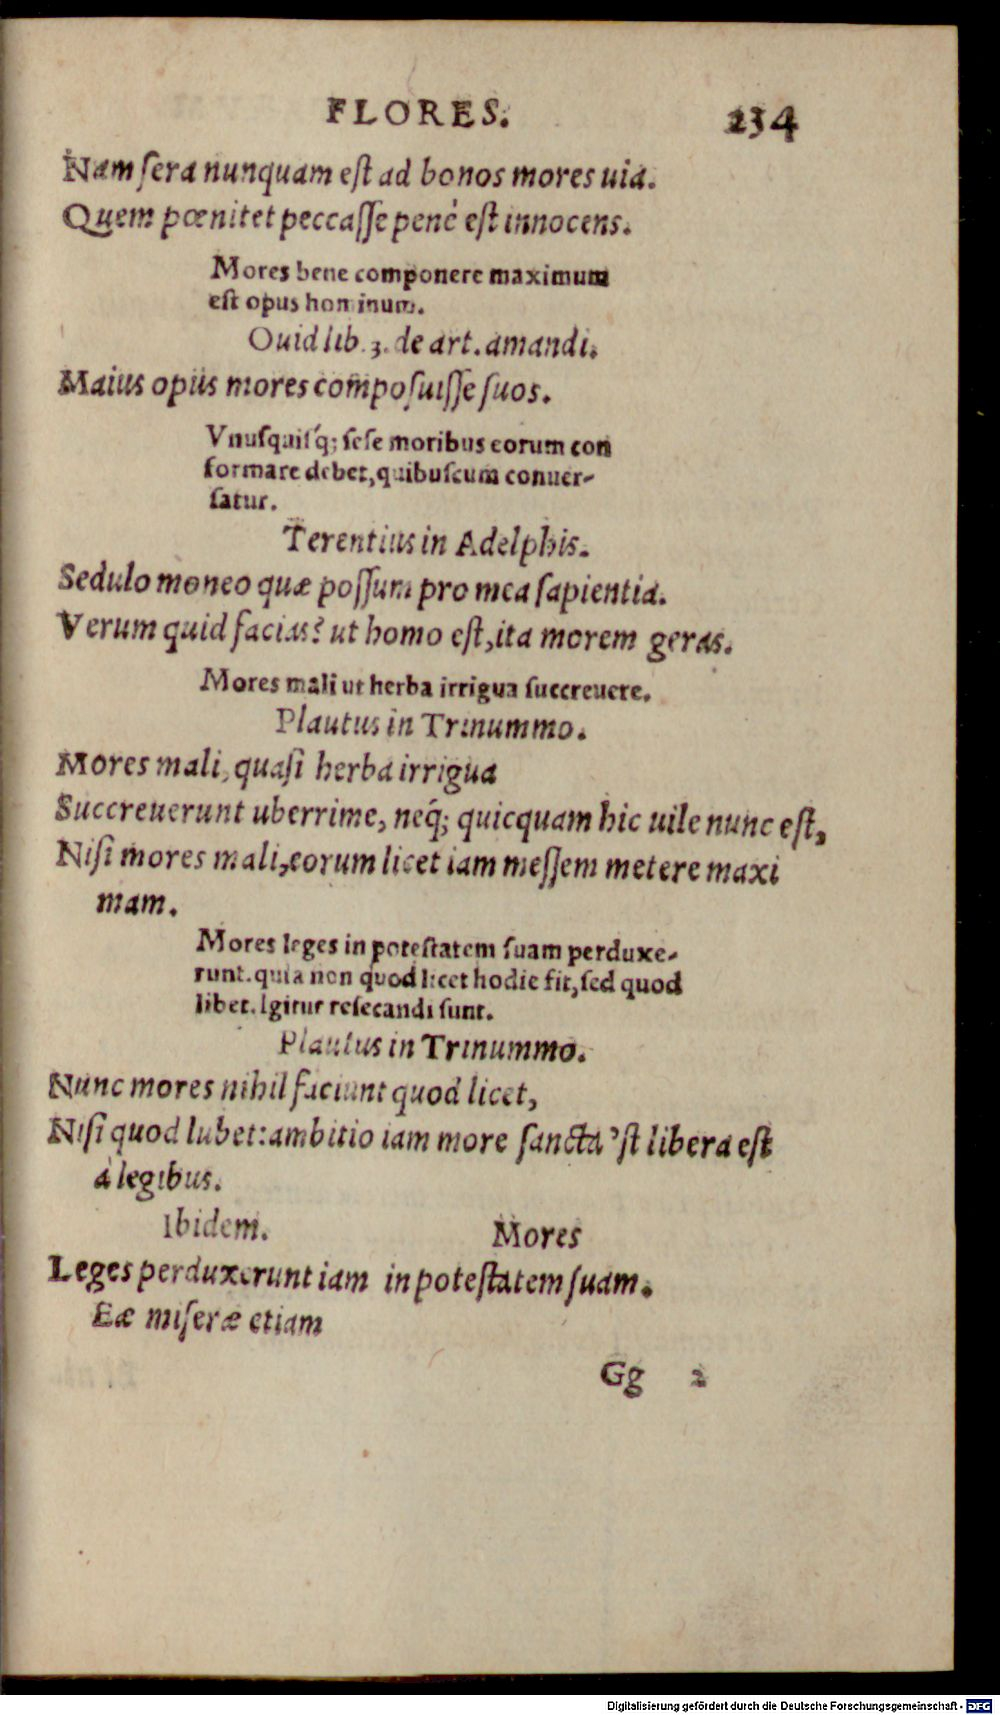 FLORES. 234
Nam ſera nunquam eſt ad bonos mores uia.
Quem pœnitet peccaſſe penè eſt innocens.
Mores bene componere maximum
eſt opus hominum.
Ouid lib. 3. de art. amandi.
Maius opus mores compoſuiſſe ſuos.
Vnuſquiſq́; ſeſe moribus eorum con
formare debet, quibuſcum conuer-
ſatur.
Terentius in Adelphis.
Sedulo moneo quæ poſſum pro mea ſapientia.
Verum quid facias? ut homo eſt, ita morem geras.
Mores mali ut herba irrigua ſuccreuere.
Plautus in Trinummo.
Mores mali, quaſi herba irrigua
Succreuerunt uberrime, neq́; quicquam hic uile nunc eſt,
Niſi mores mali, eorum licet iam meſſem metere maxi
mam.
Mores leges in poteſtatem ſuam perduxe-
runt. quia non quod licet hodie fit, ſed quod
libet. Igitur reſecandi ſunt.
Plautus in Trinummo.
Nunc mores nihil faciunt quod licet,
Niſi quod lubet: ambitio iam more ſancta 'ſt libera eſt
à legibus.
Ibidem. Mores
Leges perduxerunt iam in poteſtatem ſuam.
Eæ miſeræ etiam
Gg 2
Digitalisierung gefördert durch die Deutsche Forschungsgemeinschaft - DFG